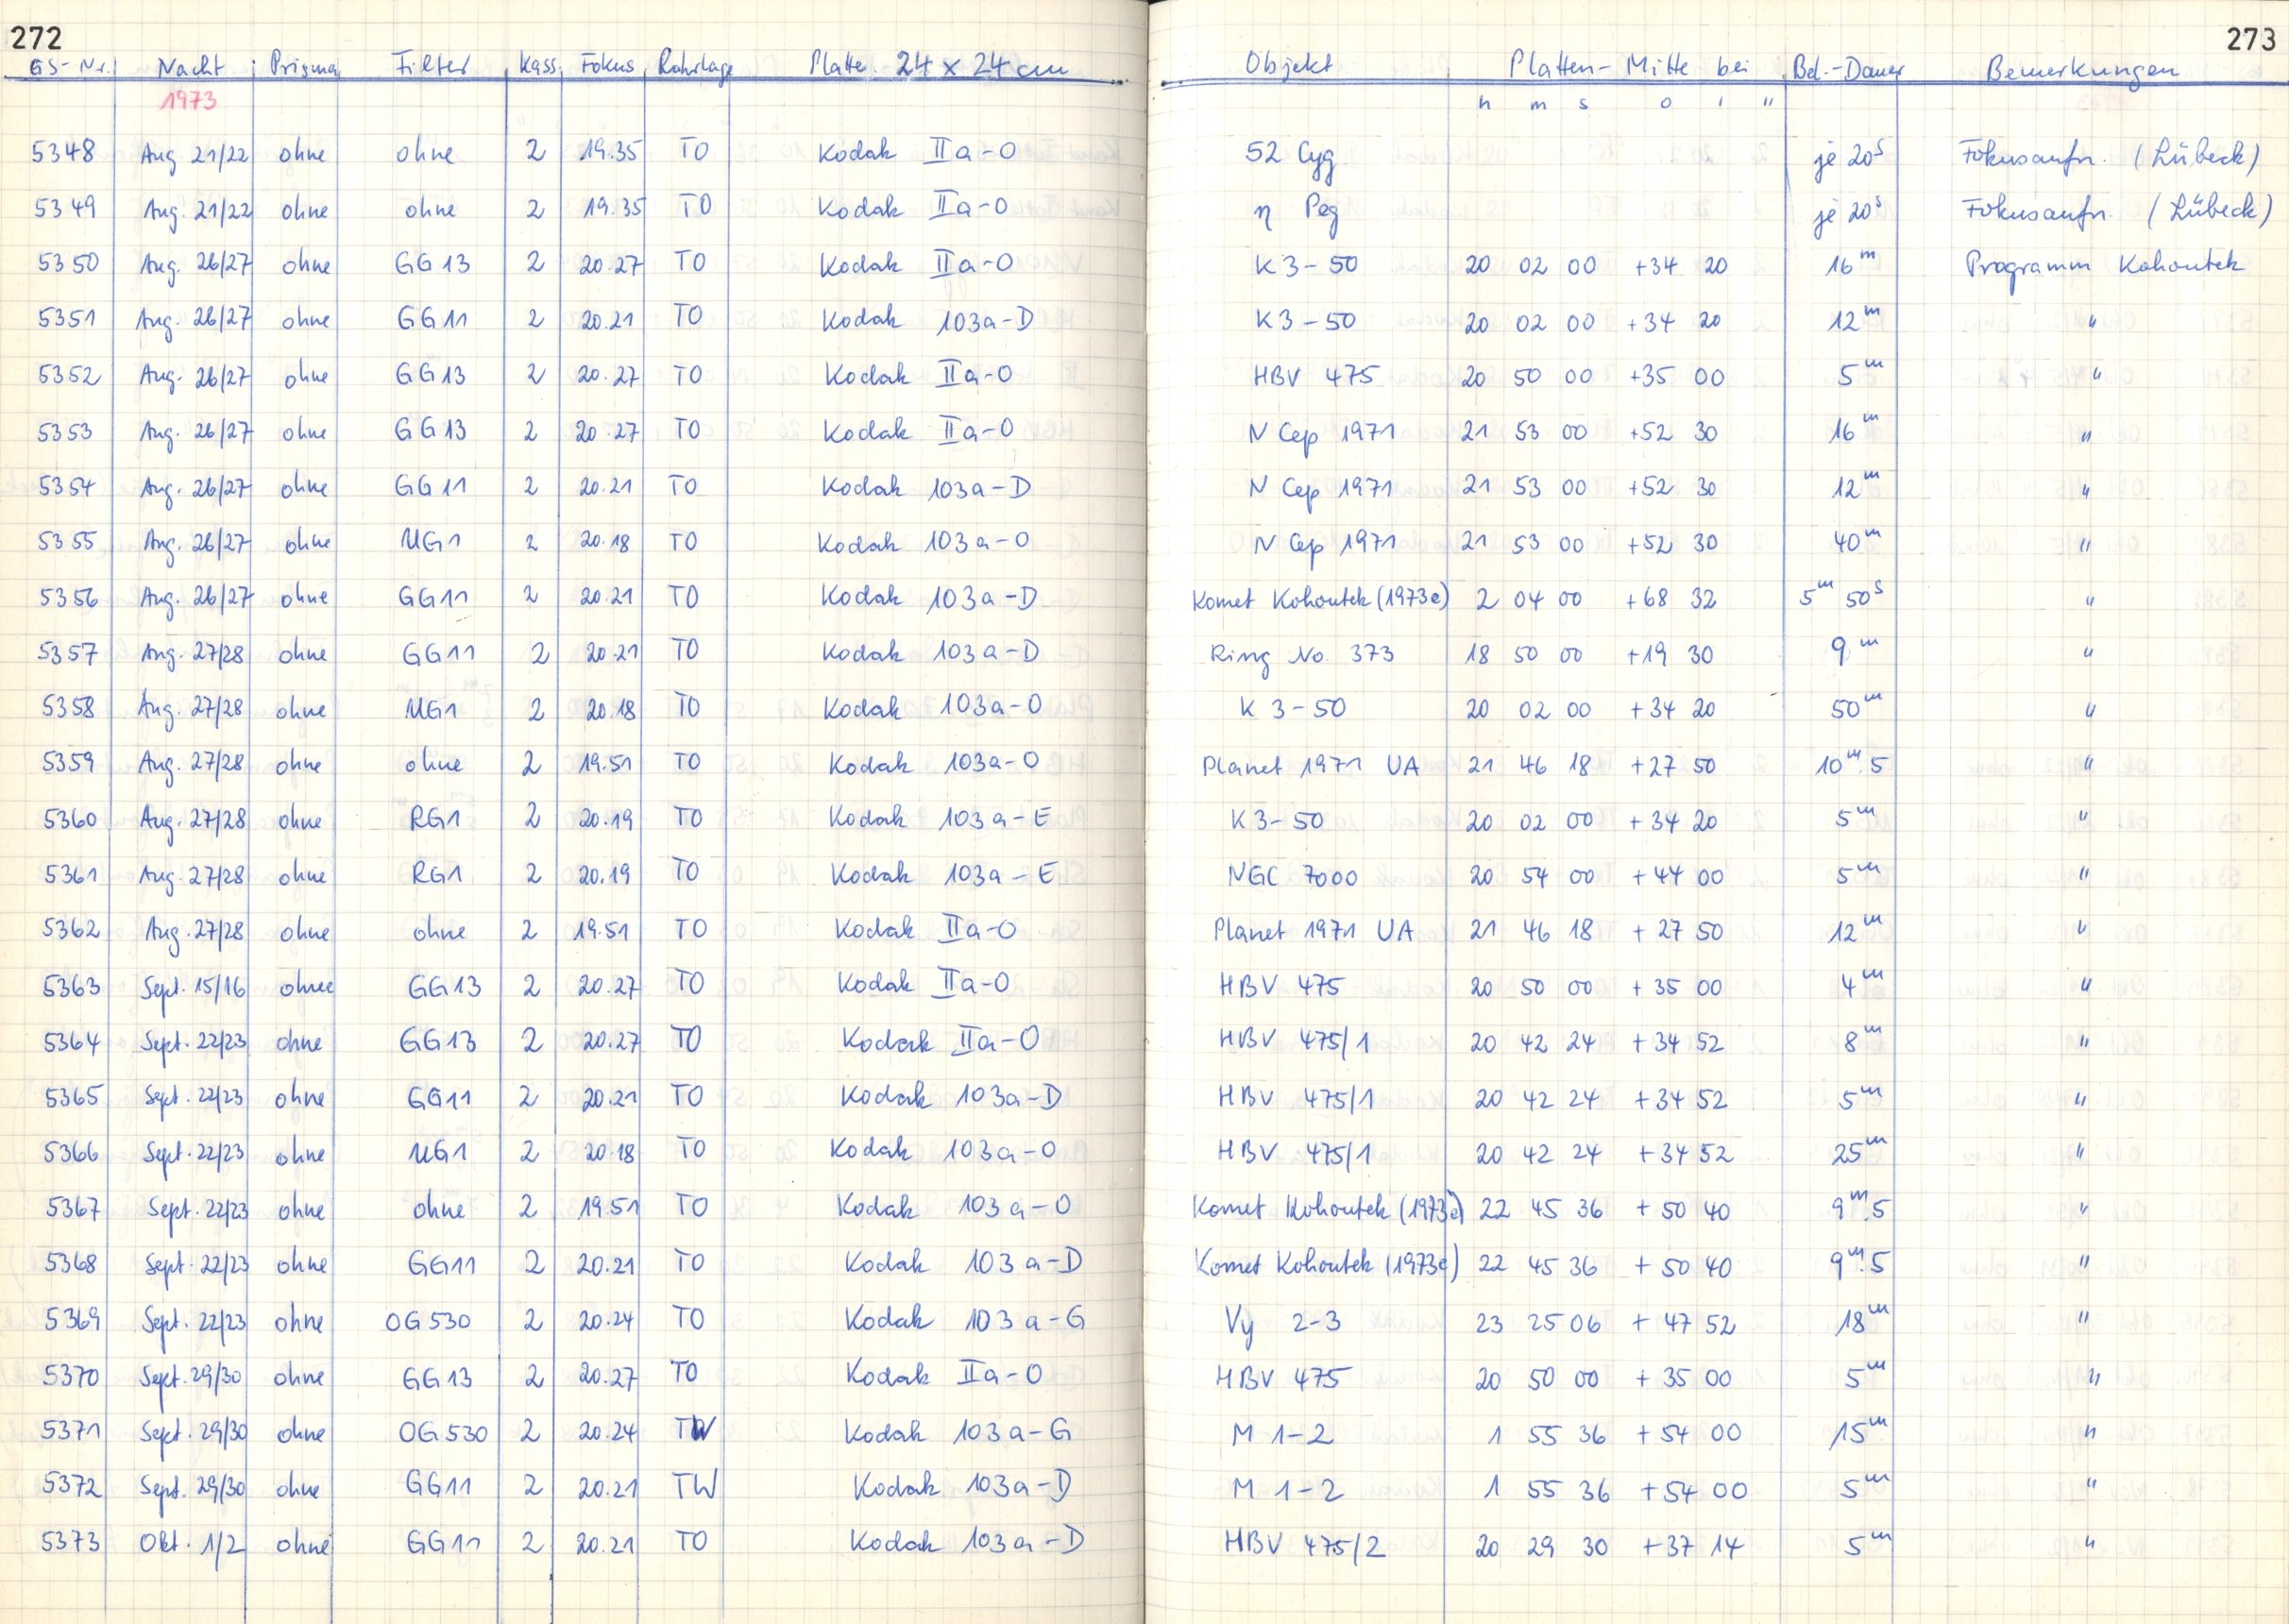 272
GS-Nr. Nacht Prisma Filter Kass. Fokus Rohrlage Platte 24 x 24 cm Objekt Platten-Mitte bei Bel.-Dauer Bemerkungen
273
1973 h m s o ' "
5348 Aug 21/22 ohne ohne 2 19.35 TO Kodak IIa-O 52 Cyg je 20s Fokusaufn. (Lübeck)
5349 Aug. 21/22 ohne ohne 2 19.35 TO Kodak IIa-O η Peg je 20s Fokusaufn. (Lübeck)
5350 Aug. 26/27 ohne GG13 2 20.27 TO Kodak IIa-O K3-50 20 02 00 +34 20 16m Programm Kohoutek
5351 Aug. 26/27 ohne GG11 2 20.21 TO Kodak 103a-D K3-50 20 02 00 +34 20 12m "
5352 Aug. 26/27 ohne GG13 2 20.27 TO Kodak IIa-O HBV 475 20 50 00 +35 00 5m "
5353 Aug. 26/27 ohne GG13 2 20.27 TO Kodak IIa-O N Cep 1971 21 53 00 +52 30 16m "
5354 Aug. 26/27 ohne GG11 2 20.21 TO Kodak 103a-D N Cep 1971 21 53 00 +52 30 12m "
5355 Aug. 26/27 ohne UG1 2 20.18 TO Kodak 103a-O N Cep 1971 21 53 00 +52 30 40m "
5356 Aug. 26/27 ohne GG11 2 20.21 TO Kodak 103a-D Komet Kohoutek (1973e) 2 04 00 +68 32 5m 50s "
5357 Aug. 27/28 ohne GG11 2 20.21 TO Kodak 103a-D Ring No. 373 18 50 00 +19 30 9m "
5358 Aug. 27/28 ohne UG1 2 20.18 TO Kodak 103a-O K 3-50 20 02 00 +34 20 50m "
5359 Aug. 27/28 ohne ohne 2 19.51 TO Kodak 103a-O Planet 1971 UA 21 46 18 +27 50 10m.5 "
5360 Aug. 27/28 ohne RG1 2 20.19 TO Kodak 103a-E K3-50 20 02 00 +34 20 5m "
5361 Aug. 27/28 ohne RG1 2 20.19 TO Kodak 103a-E NGC 7000 20 54 00 +44 00 5m "
5362 Aug. 27/28 ohne ohne 2 19.51 TO Kodak IIa-O Planet 1971 UA 21 46 18 +27 50 12m "
5363 Sept. 15/16 ohne GG13 2 20.27 TO Kodak IIa-O HBV 475 20 50 00 +35 00 4m "
5364 Sept. 22/23 ohne GG13 2 20.27 TO Kodak IIa-O HBV 475/1 20 42 24 +34 52 8m "
5365 Sept. 22/23 ohne GG11 2 20.21 TO Kodak 103a-D HBV 475/1 20 42 24 +34 52 5m "
5366 Sept. 22/23 ohne UG1 2 20.18 TO Kodak 103a-O HBV 475/1 20 42 24 +34 52 25m "
5367 Sept. 22/23 ohne ohne 2 19.51 TO Kodak 103a-O Komet Kohoutek (1973e) 22 45 36 +50 40 9m.5 "
5368 Sept. 22/23 ohne GG11 2 20.21 TO Kodak 103a-D Komet Kohoutek (1973e) 22 45 36 +50 40 9m.5 "
5369 Sept. 22/23 ohne OG530 2 20.24 TO Kodak 103a-G Vy 2-3 23 25 06 +47 52 18m "
5370 Sept. 29/30 ohne GG13 2 20.27 TO Kodak IIa-O HBV 475 20 50 00 +35 00 5m "
5371 Sept. 29/30 ohne OG530 2 20.24 TW Kodak 103a-G M 1-2 1 55 36 +54 00 15m "
5372 Sept. 29/30 ohne GG11 2 20.21 TW Kodak 103a-D M 1-2 1 55 36 +54 00 5m "
5373 Okt. 1/2 ohne GG11 2 20.21 TO Kodak 103a-D HBV 475/2 20 29 30 +37 14 5m "